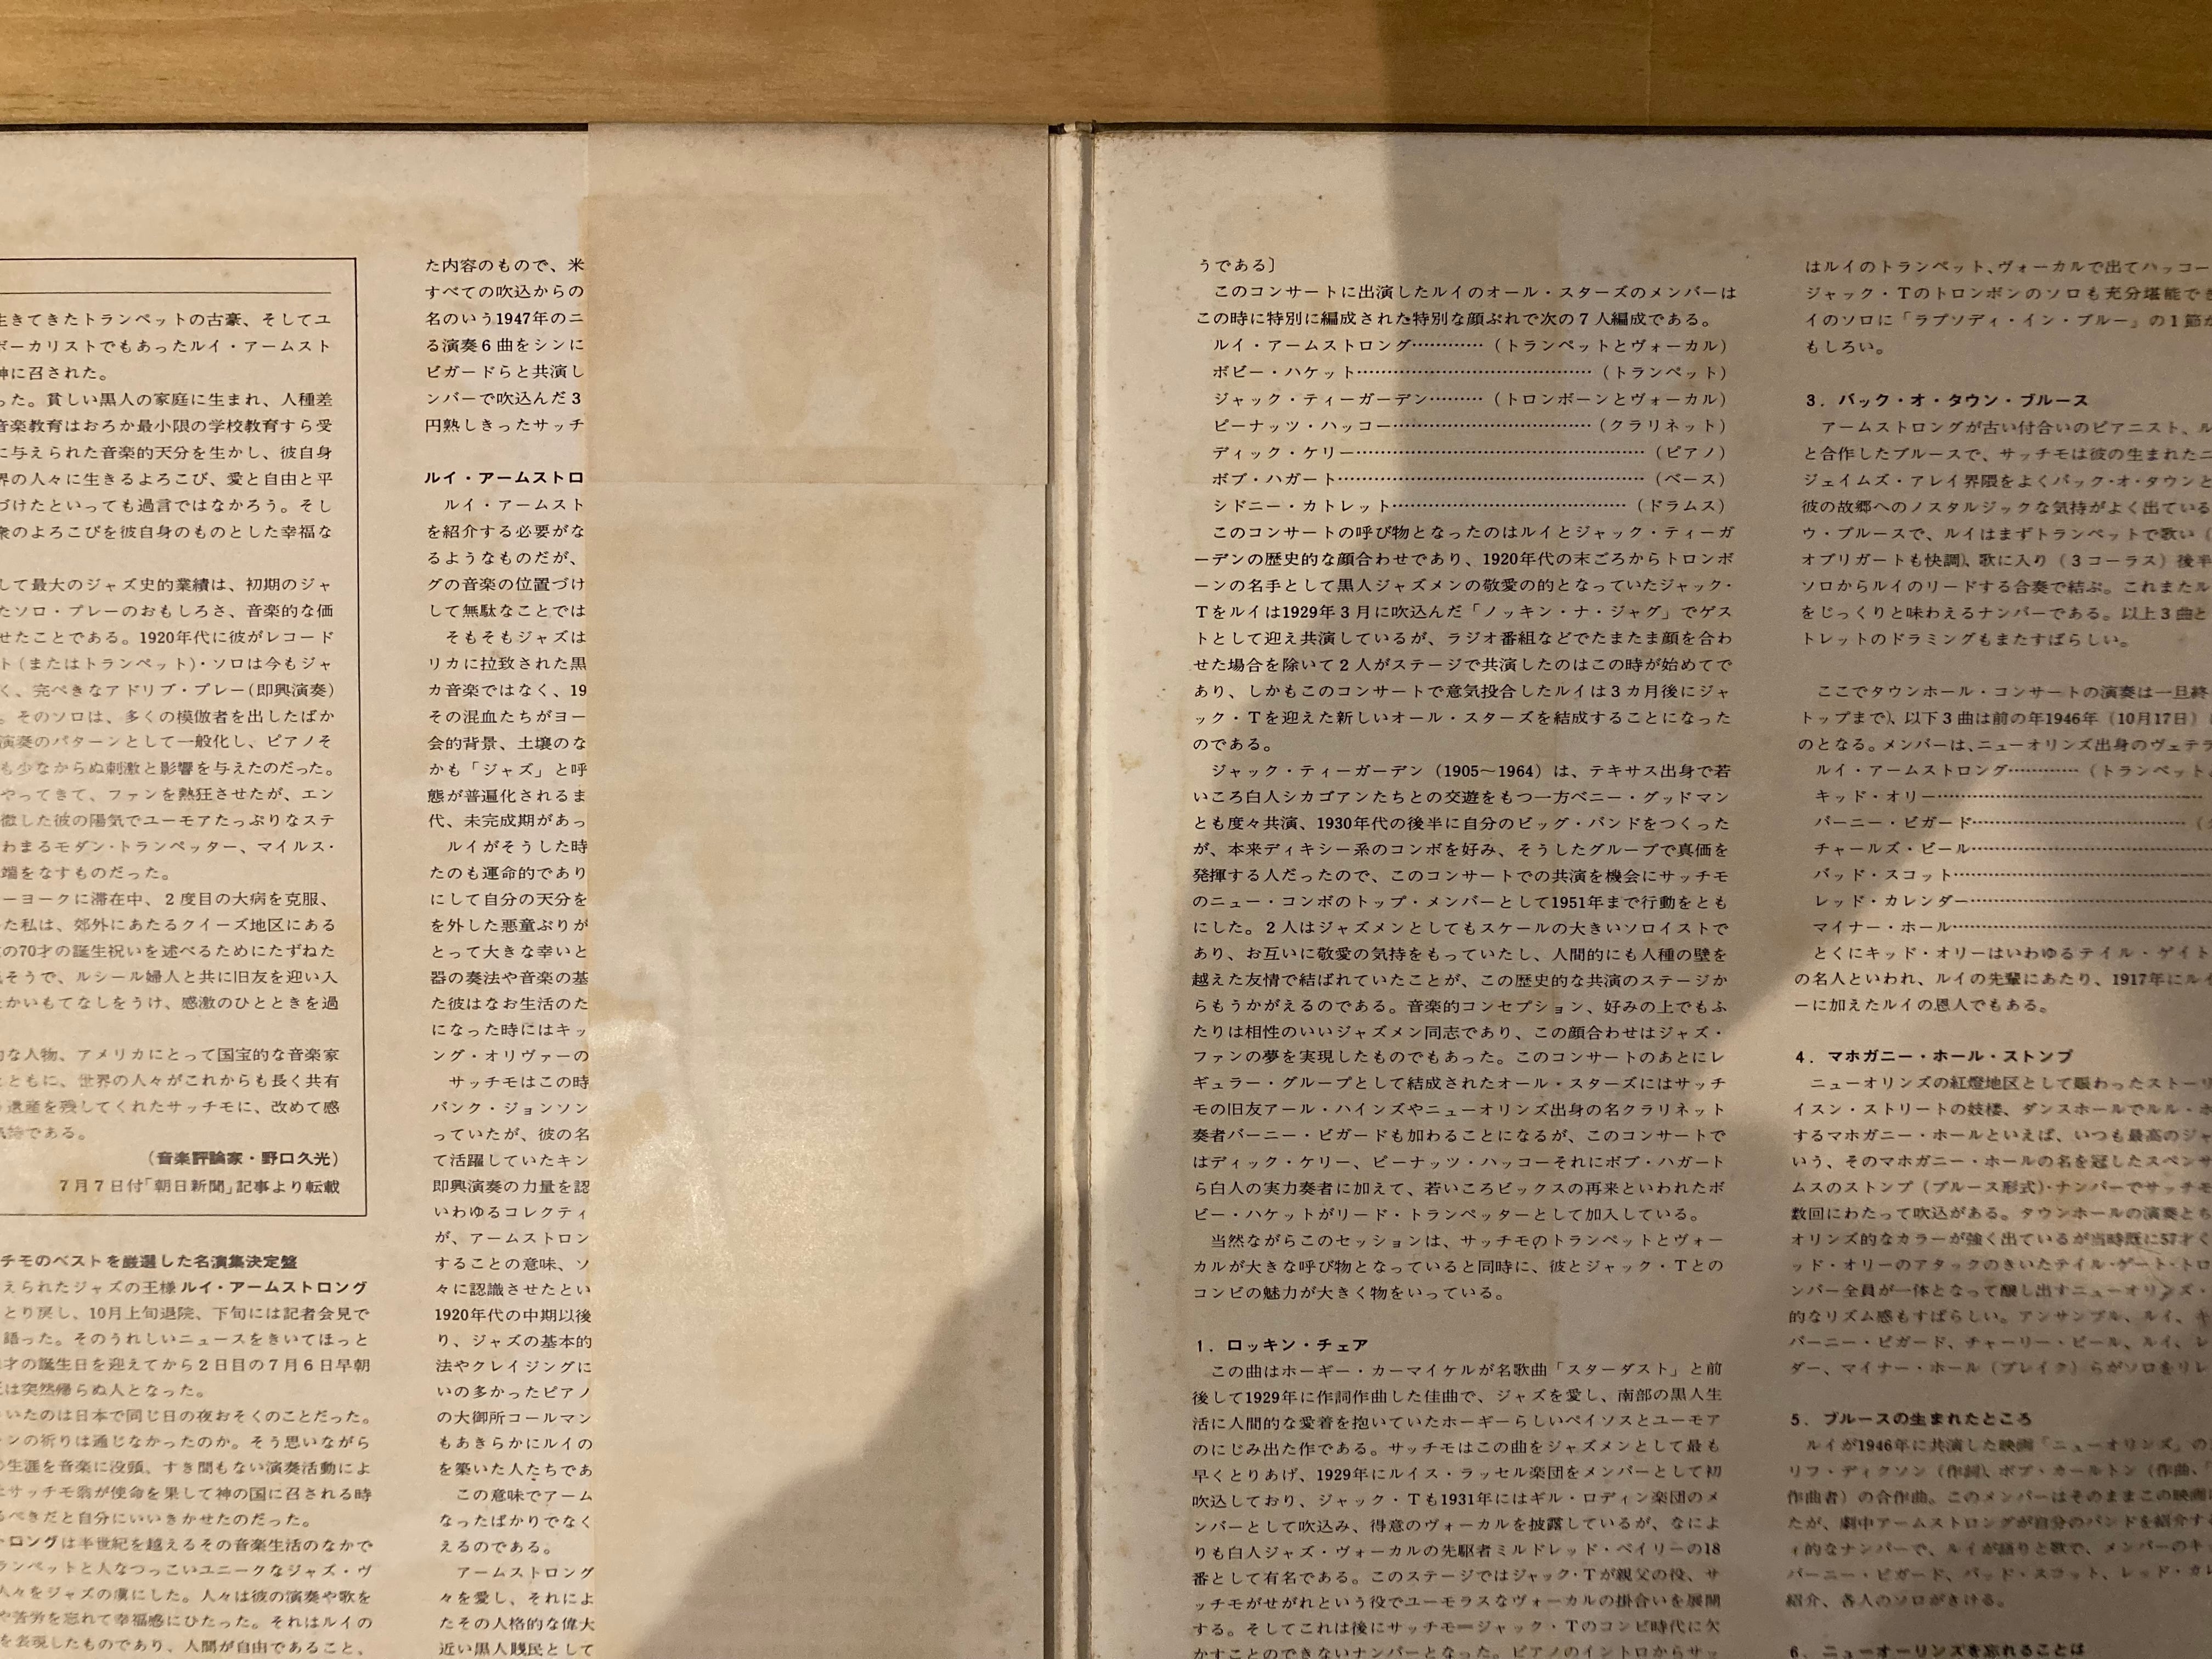 生きてきたトランペットの古豪、そしてユ
ボーカリストでもあったルイ・アームスト
神に召された。
った。貧しい黒人の家庭に生まれ、人種差
音楽教育はおろか最小限の学校教育すら受
に与えられた音楽的天分を生かし、彼自身
界の人々に生きるよろこび、愛と自由と平
づけたといっても過言ではなかろう。そし
衆のよろこびを彼自身のものとした幸福な
して最大のジャズ史的業績は、初期のジャ
たソロ・プレーのおもしろさ、音楽的な価
せたことである。1920年代に彼がレコード
ト(またはトランペット)・ソロは今もジャ
く、完ぺきなアドリブ・プレー(即興演奏)
。そのソロは、多くの模倣者を出したばか
演奏のパターンとして一般化し、ピアノそ
も少なからぬ刺激と影響を与えたのだった。
やってきて、ファンを熱狂させたが、エン
徹した彼の陽気でユーモアたっぷりなステ
わまるモダン・トランペッター、マイルス・
端をなすものだった。
ーヨークに滞在中、2度目の大病を克服、
た私は、郊外にあたるクイーズ地区にある
の70才の誕生祝いを述べるためにたずねた
そうで、ルシール婦人と共に旧友を迎い入
かいもてなしをうけ、感激のひとときを過
な人物、アメリカにとって国宝的な音楽家
とともに、世界の人々がこれからも長く共有
遺産を残してくれたサッチモに、改めて感
である。
(音楽評論家・野口久光)
7月7日付「朝日新聞」記事より転載
チモのベストを厳選した名演集決定盤
えられたジャズの王様ルイ・アームストロング
とり戻し、10月上旬退院、下旬には記者会見で
語った。そのうれしいニュースをきいてほっと
才の誕生日を迎えてから2日目の7月6日早朝
は突然帰らぬ人となった。
いたのは日本で同じ日の夜おそくのことだった。
ンの祈りは通じなかったのか。そう思いながら
生涯を音楽に没頭、すき間もない演奏活動によ
サッチモ翁が使命を果して神の国に召される時
るべきだと自分にいいきかせたのだった。
トロングは半世紀を越えるその音楽生活のなかで
ランペットと人なつっこいユニークなジャズ・ヴ
人々をジャズの虜にした。人々は彼の演奏や歌を
や苦労を忘れて幸福感にひたった。それはルイの
を表現したものであり、人間が自由であること、
た内容のもので、米
すべての吹込からの
名のいう1947年のニ
る演奏6曲をシンに
ビガードらと共演し
ンバーで吹込んだ3
円熟しきったサッチ
ルイ・アームストロ
ルイ・アームスト
を紹介する必要がな
るようなものだが、
グの音楽の位置づけ
して無駄なことでは
そもそもジャズは
リカに拉致された黒
カ音楽ではなく、19
その混血たちがヨー
会的背景、土壌のな
かも「ジャズ」と呼
態が普遍化されるま
代、未完成期があっ
ルイがそうした時
たのも運命的であり
にして自分の天分を
を外した悪童ぶりが
とって大きな幸いと
器の奏法や音楽の基
た彼はなお生活のた
になった時にはキッ
ング・オリヴァーの
サッチモはこの時
バンク・ジョンソン
っていたが、彼の名
て活躍していたキン
即興演奏の力量を認
いわゆるコレクティ
が、アームストロン
することの意味、ソ
々に認識させたとい
1920年代の中期以後
り、ジャズの基本的
法やクレイジングに
いの多かったピアノ
の大御所コールマン
もあきらかにルイの
を築いた人たちであ
この意味でアーム
なったばかりでなく
えるのである。
アームストロング
々を愛し、それによ
たその人格的な偉大
近い黒人賎民として
うである〕
このコンサートに出演したルイのオール・スターズのメンバーは
この時に特別に編成された特別な顔ぶれで次の7人編成である。
ルイ・アームストロング…………(トランペットとヴォーカル)
ボビー・ハケット……………………………………(トランペット)
ジャック・ティーガーデン………(トロンボーンとヴォーカル)
ピーナッツ・ハッコー………………………………(クラリネット)
ディック・ケリー…………………………………………(ピアノ)
ボブ・ハガート……………………………………………(ベース)
シドニー・カトレット…………………………………(ドラムス)
このコンサートの呼び物となったのはルイとジャック・ティーガ
ーデンの歴史的な顔合わせであり、1920年代の末ごろからトロンボ
ーンの名手として黒人ジャズメンの敬愛の的となっていたジャック・
Tをルイは1929年3月に吹込んだ「ノッキン・ナ・ジャグ」でゲス
トとして迎え共演しているが、ラジオ番組などでたまたま顔を合わ
せた場合を除いて2人がステージで共演したのはこの時が始めてで
あり、しかもこのコンサートで意気投合したルイは3カ月後にジャ
ック・Tを迎えた新しいオール・スターズを結成することになった
のである。
ジャック・ティーガーデン(1905～1964)は、テキサス出身で若
いころ白人シカゴアンたちとの交遊をもつ一方ベニー・グッドマン
とも度々共演、1930年代の後半に自分のビッグ・バンドをつくった
が、本来ディキシー系のコンボを好み、そうしたグループで真価を
発揮する人だったので、このコンサートでの共演を機会にサッチモ
のニュー・コンボのトップ・メンバーとして1951年まで行動をとも
にした。2人はジャズメンとしてもスケールの大きいソロイストで
あり、お互いに敬愛の気持をもっていたし、人間的にも人種の壁を
越えた友情で結ばれていたことが、この歴史的な共演のステージか
らもうかがえるのである。音楽的コンセプション、好みの上でもふ
たりは相性のいいジャズメン同志であり、この顔合わせはジャズ・
ファンの夢を実現したものでもあった。このコンサートのあとにレ
ギュラー・グループとして結成されたオール・スターズにはサッチ
モの旧友アール・ハインズやニューオリンズ出身の名クラリネット
奏者バーニー・ビガードも加わることになるが、このコンサートで
はディック・ケリー、ピーナッツ・ハッコーそれにボブ・ハガート
ら白人の実力奏者に加えて、若いころビックスの再来といわれたボ
ビー・ハケットがリード・トランペッターとして加入している。
当然ながらこのセッションは、サッチモのトランペットとヴォー
カルが大きな呼び物となっていると同時に、彼とジャック・Tとの
コンビの魅力が大きく物をいっている。
1. ロッキン・チェア
この曲はホーギー・カーマイケルが名歌曲「スターダスト」と前
後して1929年に作詞作曲した佳曲で、ジャズを愛し、南部の黒人生
活に人間的な愛着を抱いていたホーギーらしいペイソスとユーモア
のにじみ出た作である。サッチモはこの曲をジャズメンとして最も
早くとりあげ、1929年にルイス・ラッセル楽団をメンバーとして初
吹込しており、ジャック・Tも1931年にはギル・ロディン楽団のメ
ンバーとして吹込み、得意のヴォーカルを披露しているが、なによ
りも白人ジャズ・ヴォーカルの先駆者ミルドレッド・ベイリーの18
番として有名である。このステージではジャック・Tが親父の役、サ
ッチモがせがれという役でユーモラスなヴォーカルの掛合いを展開
する。そしてこれは後にサッチモ＝ジャック・Tのコンビ時代に欠
かすことのできないナンバーとなった。ピアノのイントロからサッ
はルイのトランペット、ヴォーカルで出てハッコー
ジャック・Tのトロンボンのソロも充分堪能でき
イのソロに「ラプソディ・イン・ブルー」の1節が
もしろい。
3. バック・オ・タウン・ブルース
アームストロングが古い付合いのピアニスト、ル
と合作したブルースで、サッチモは彼の生まれたニ
ジェイムズ・アレイ界隈をよくバック・オ・タウンと
彼の故郷へのノスタルジックな気持がよく出ている
ウ・ブルースで、ルイはまずトランペットで歌い(
オブリガートも快調)、歌に入り(3コーラス)後半
ソロからルイのリードする合奏で結ぶ。これまたル
をじっくりと味わえるナンバーである。以上3曲と
トレットのドラミングもまたすばらしい。
ここでタウンホール・コンサートの演奏は一旦終
トップまで)、以下3曲は前の年1946年(10月17日)
のとなる。メンバーは、ニューオリンズ出身のヴェテラ
ルイ・アームストロング…………(トランペット
キッド・オリー……………………………………
バーニー・ビガード………………………………
チャールズ・ビール………………………………
バッド・スコット…………………………………
レッド・カレンダー………………………………
マイナー・ホール…………………………………
とくにキッド・オリーはいわゆるテイル・ゲイト
の名人といわれ、ルイの先輩にあたり、1917年にルイ
ーに加えたルイの恩人でもある。
4. マホガニー・ホール・ストンプ
ニューオリンズの紅燈地区として賑わったストーリ
イスン・ストリートの妓楼、ダンスホールでルル・ホ
するマホガニー・ホールといえば、いつも最高のジャ
いう、そのマホガニー・ホールの名を冠したスペンサ
ムスのストンプ(ブルース形式)・ナンバーでサッチモ
数回にわたって吹込がある。タウンホールの演奏とち
オリンズ的なカラーが強く出ているが当時既に57才く
ッド・オリーのアタックのきいたテイル・ゲート・トロ
ンバー全員が一体となって醸し出すニューオリンズ・
的なリズム感もすばらしい。アンサンブル、ルイ、キ
バーニー・ビガード、チャーリー・ビール、ルイ、レ
ダー、マイナー・ホール(ブレイク)らがソロをリレ
5. ブルースの生まれたところ
ルイが1946年に共演した映画「ニューオリンズ」の
リフ・ディクソン(作詞)、ボブ・カールトン(作曲、「
作曲者)の合作曲。このメンバーはそのままこの映画に
たが、劇中アームストロングが自分のバンドを紹介する
ィ的なナンバーで、ルイが語りと歌で、メンバーのキ
バーニー・ビガード、バッド・スコット、レッド・カレ
紹介、各人のソロがきける。
6. ニューオーリンズを忘れることは